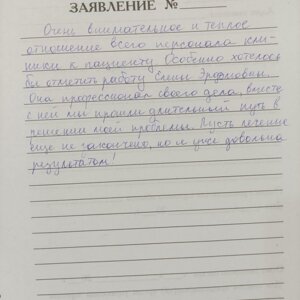 ЗАЯВЛЕНИЕ №
Очень внимательное и теплое
отношение всего персонала кли-
ники к пациенту. Особенно хотелось
бы отметить работу Елены
Она профессионал своего дела, вместе
с ней мы прошли длительный путь в
решении моей проблемы. Пусть лечение
еще не закончено, но я уже довольна
результатом!